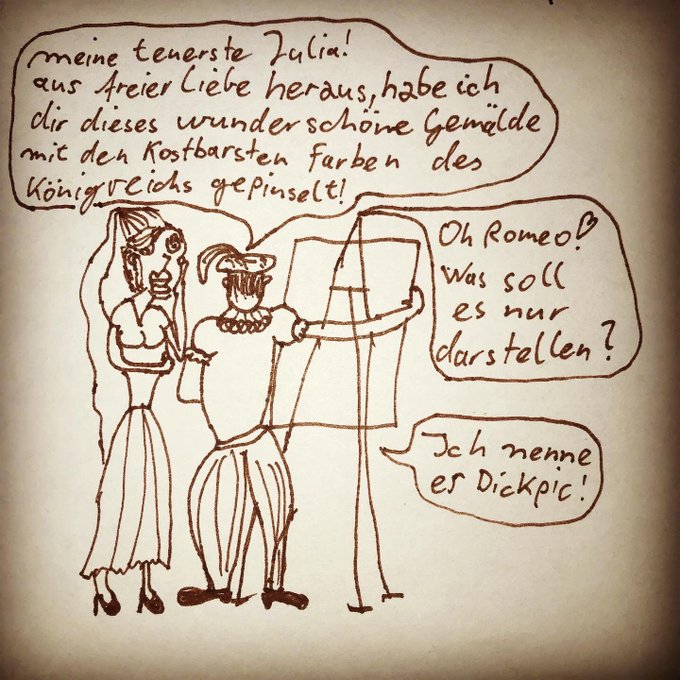 meine teuerste Julia!
aus freier Liebe heraus, habe ich
dir dieses wunderschöne Gemälde
mit den Kostbarsten Farben des
Königreichs gepinselt!
Oh Romeo!
Was soll
es nur
darstellen?
Ich nenne
es Dickpic!